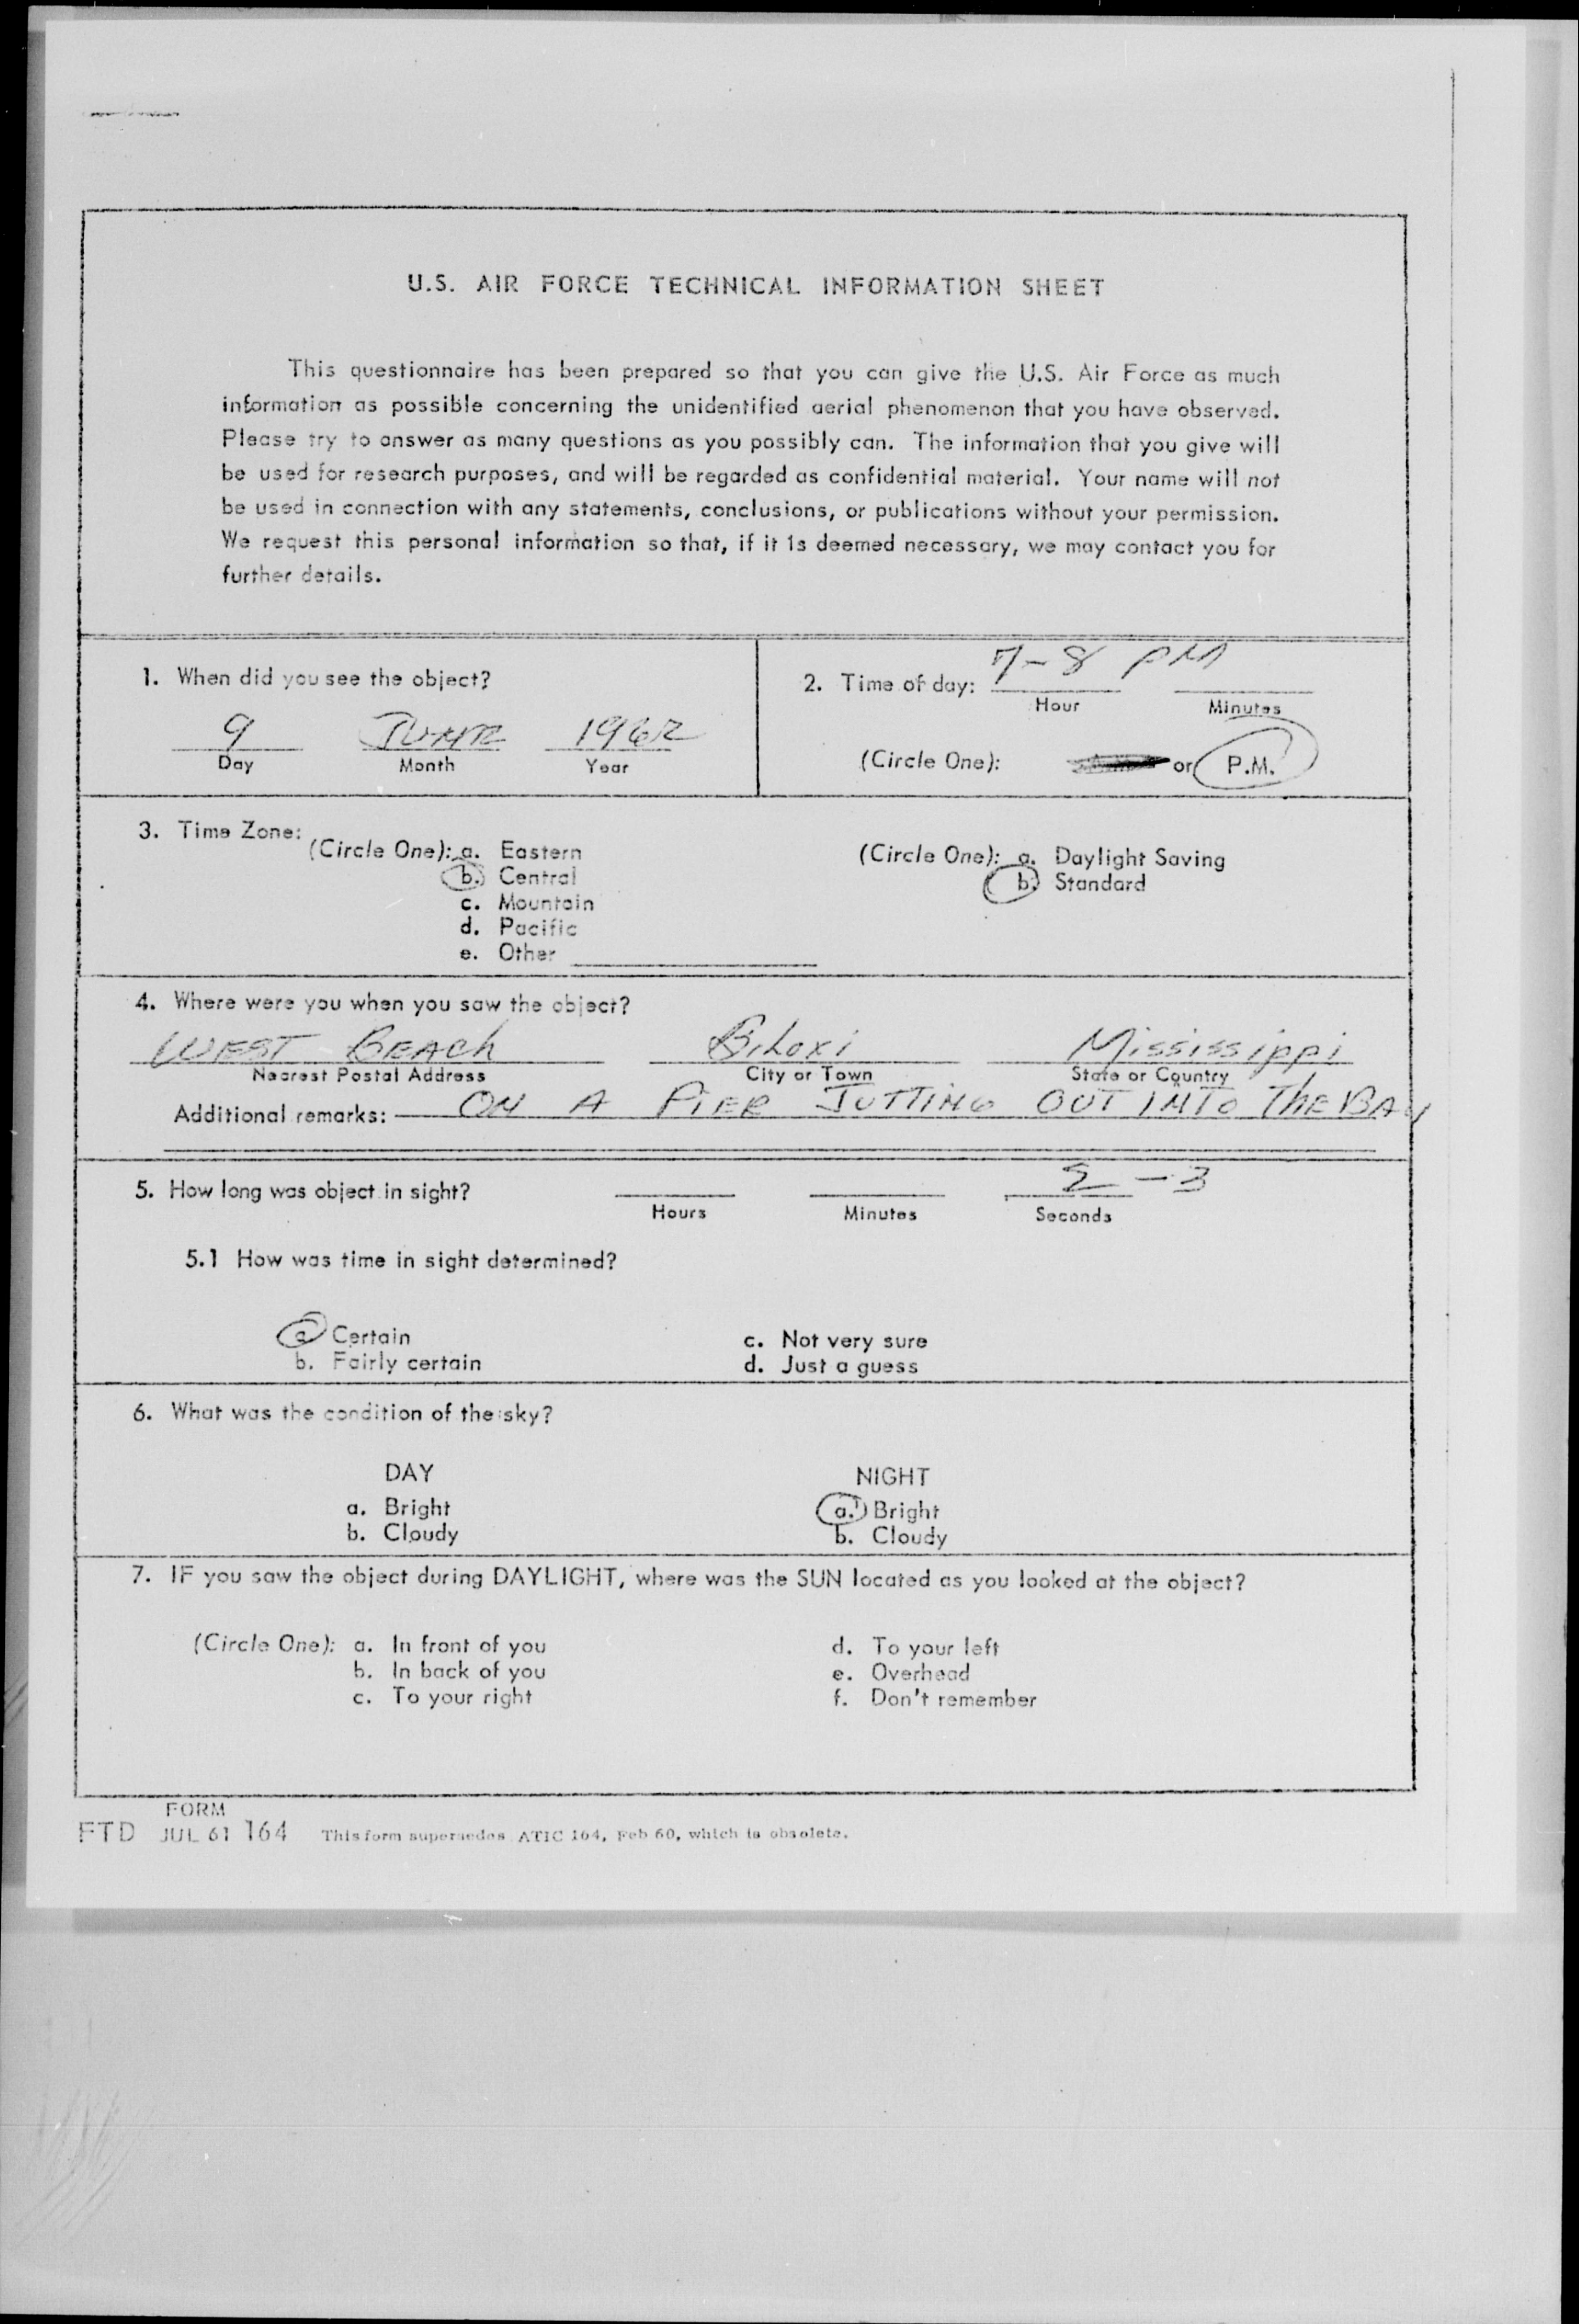 U.S. AIR FORCE TECHNICAL INFORMATION SHEET
This questionnaire has been prepared so that you can give the U.S. Air Force as much
information as possible concerning the unidentified aerial phenomenon that you have observed.
Please try to answer as many questions as you possibly can. The information that you give will
be used for research purposes, and will be regarded as confidential material. Your name will not
be used in connection with any statements, conclusions, or publications without your permission.
We request this personal information so that, if it is deemed necessary, we may contact you for
further details.
1. When did you see the object?
9 JUNE 1962
Day Month Year
2. Time of day: 7-8 PM
Hour Minutes
(Circle One): or P.M.
3. Time Zone:
(Circle One): a. Eastern
b. Central
c. Mountain
d. Pacific
e. Other
(Circle One): a. Daylight Saving
b. Standard
4. Where were you when you saw the object?
WEST BEACh Biloxi Mississippi
Nearest Postal Address City or Town State or Country
Additional remarks: ON A PIER JUTTING OUT INTO ThE BAY
5. How long was object in sight? 2-3
Hours Minutes Seconds
5.1 How was time in sight determined?
a. Certain c. Not very sure
b. Fairly certain d. Just a guess
6. What was the condition of the sky?
DAY NIGHT
a. Bright a. Bright
b. Cloudy b. Cloudy
7. IF you saw the object during DAYLIGHT, where was the SUN located as you looked at the object?
(Circle One): a. In front of you d. To your left
b. In back of you e. Overhead
c. To your right f. Don't remember
FORM
FTD JUL 61 164 This form supersedes ATIC 164, Feb 60, which is obsolete.